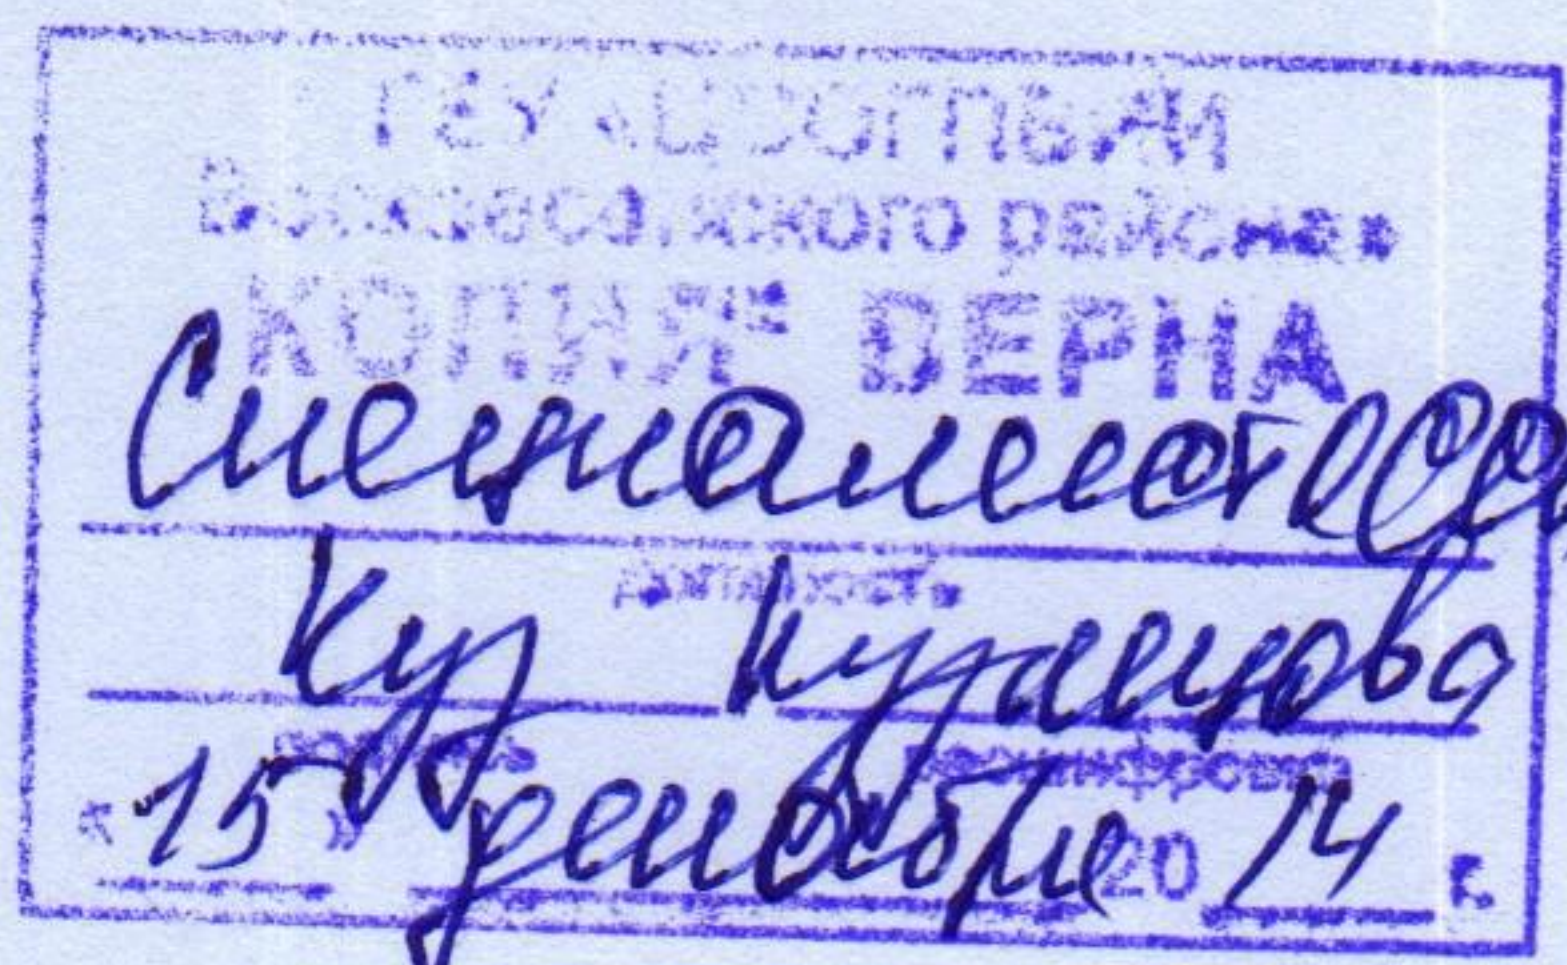 ГБУ «ЦСОГПВИИ
района»
КОПИЯ ВЕРНА
Специалист
должность
Куз Кузнецова
подпись расшифровка
« 15 » декабря 20 14 г.